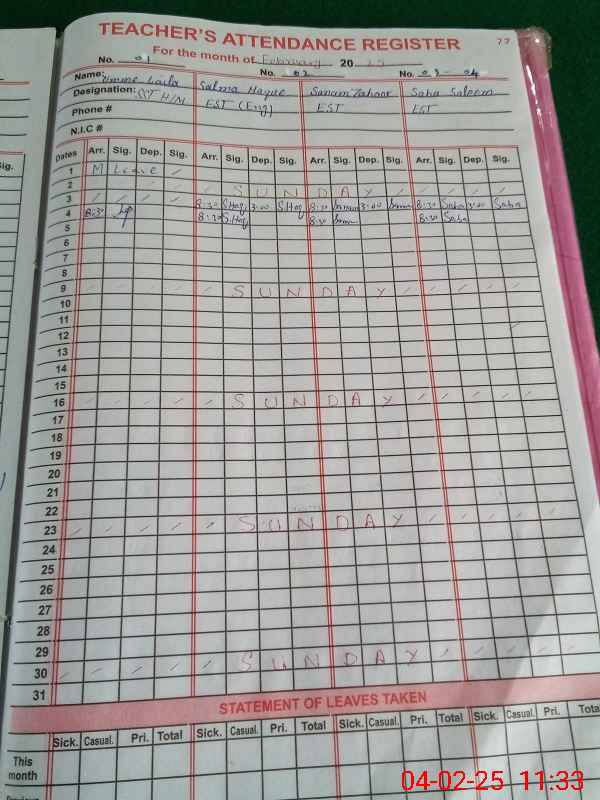 TEACHER'S ATTENDANCE REGISTER 77
For the month of February 20 25
No. 01 No. 02 No. 03 - 04
Name: Umme Laila Salma Haque Sanam Zahoor Saha Saleem
Designation: SST H/M EST (Eng) EST EST
Phone #
N.I.C #
Dates Arr. Sig. Dep. Sig. Arr. Sig. Dep. Sig. Arr. Sig. Dep. Sig. Arr. Sig. Dep. Sig.
1 M Leave
2 SUNDAY
3 8:30 SHaq 3:00 SHaq 8:30 3:00 8:30 Saha 3:00 Saha
4 8:30 8:30 SHaq 8:30 8:30 Saha
5
6
7
8
9 SUNDAY
10
11
12
13
14
15
16 SUNDAY
17
18
19
20
21
22
23 SUNDAY
24
25
26
27
28
29
30 SUNDAY
31
STATEMENT OF LEAVES TAKEN
Sick. Casual. Pri. Total Sick. Casual. Pri. Total Sick. Casual. Pri. Total Sick. Casual. Pri. Total
This
month
04-02-25 11:33